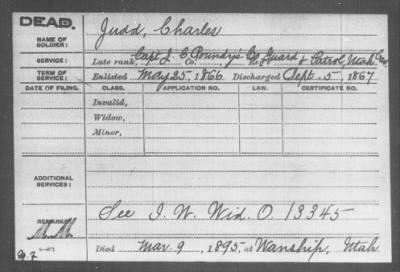 DEAD.
NAME OF SOLDIER: Judd, Charles
SERVICE: Late rank, Capt J. C Poundy's Co. Guard & Patrol, Utah Cav.
TERM OF SERVICE: Enlisted May 25, 1866 Discharged Sept. 5, 1867
DATE OF FILING. CLASS. APPLICATION NO. LAW. CERTIFICATE NO.
Invalid,
Widow,
Minor,
ADDITIONAL SERVICES:
See I. W. Wid. O. 13345
REMARKS:
Died Mar. 9, 1895, at Wanship, Utah